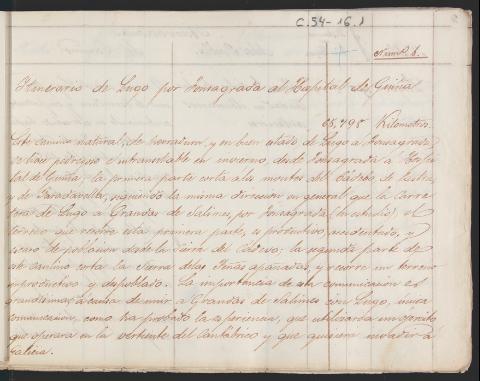 C.54-16.1
Num.º 6.
Itinerario de Lugo por Fonsagrada al Hospital de Guiña
65,795 Kilometros.
Este camino natural, de herradura, y en buen estado de Lugo a Fonsagrada
se hace pedregoso e intransitable en invierno, desde Fonsagrada a Hospi
tal de Guiña: la primera parte corta a los montes del Cádebo de
y de Paradavella, siguiendo la misma direccion en general que la Carre
tera de Lugo a Grandas de Salines por Fonsagrada (en estudio) el
terreno que recorre esta primera parte, es productivo, accidentado, y
escaso de poblacion desde la Sierra del Cádevo; la segunda parte de
este camino corta la Sierra de las Peñas apañadas, y recorre un terreno
improductivo y despoblado. La importancia de esta comunicacion es
grandisima, a causa de unir a Grandas de Salines con Lugo, unica
comunicacion, como ha probado la esperiencia, que utilizaria un ejercito
que operara en la vertiente del Cantábrico y que quisiera invadir a
Galicia.